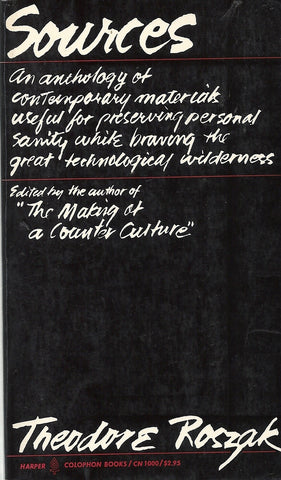 Sources
An anthology of
contemporary materials
useful for preserving personal
sanity while braving the
great technological wilderness
Edited by the author of
"The Making of
a Counter Culture"
Theodore Roszak
HARPER COLOPHON BOOKS / CN 1000 / $2.95